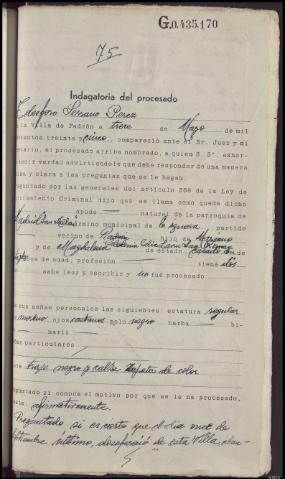 G.0.435.170
75
Indagatoria del procesado
Teodoro Serrano Perez
la Villa de Padrón a trece de Mayo de mil
cientos treinta y cinco, compareció ante el Sr. Juez y mi
etario, el procesado arriba nombrado, a quien S. Sª. exhor-
decir verdad advirtiéndole que debe responder de una manera
sa y clara a las preguntas que se le hagan.
eguntado por las generales del artículo 388 de la Ley de
ciamiento Criminal dijo que se llama como queda dicho
apodo — natural de la parroquia de
término municipal de partido
vecino de Padrón hijo de Mariano
y de Magdalena de estado casado
de edad, profesión tiene dos
sabe leer y escribir y no fué procesado
sus señas personales las siguientes: estatura regular
ojos castaños pelo negro barba — bi-
naríz
das particulares
traje negro y calza zapatos de color
guntado si conoce el motivo por que se le ha procesado,
esta: afirmativamente.
Preguntado si es cierto que el dia once de
Setiembre último, desapareció de esta Villa, aban-